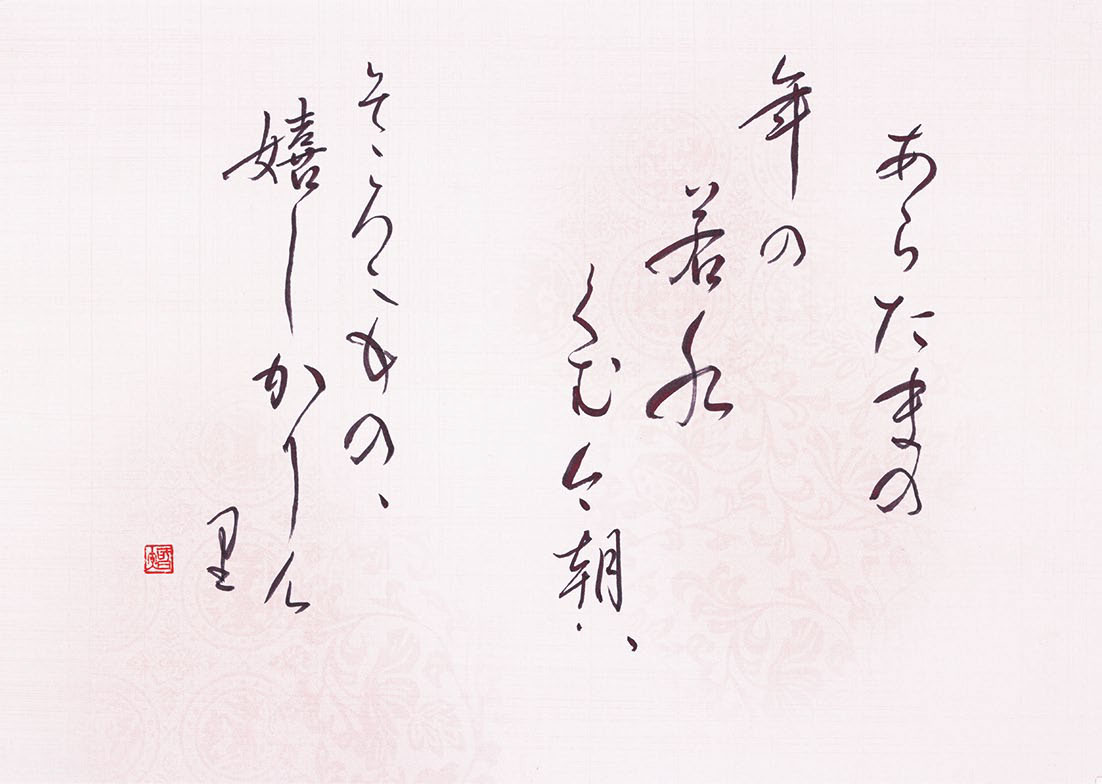 あらたまの
年の
若水
くむ今朝ハ
そゝろにものゝ
嬉しかりけ
里